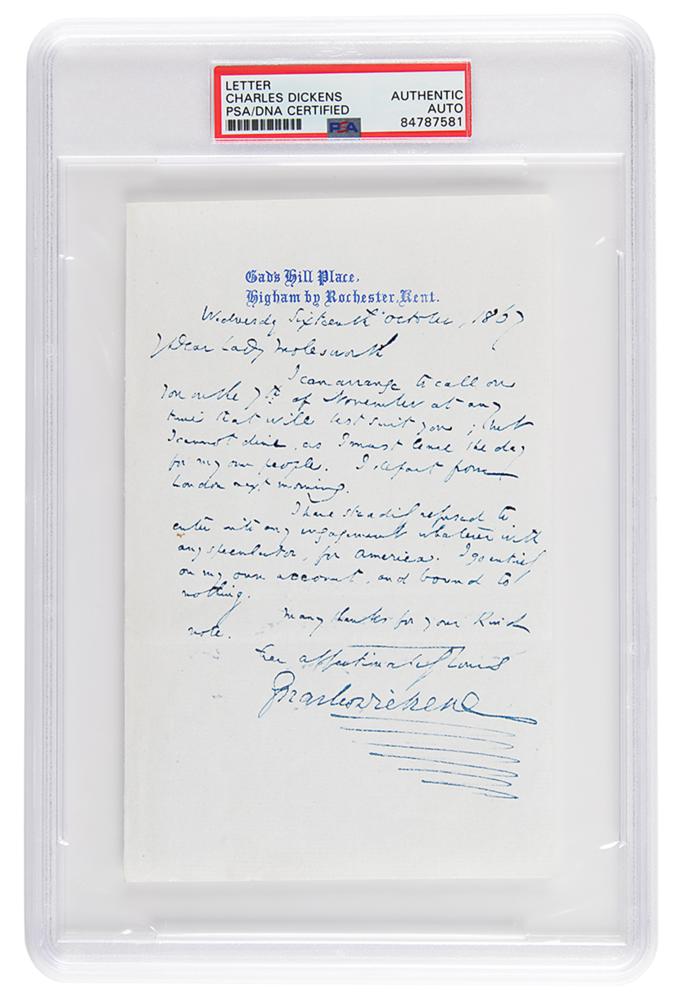 LETTER
CHARLES DICKENS
PSA/DNA CERTIFIED
AUTHENTIC
AUTO
84787581
PSA
Gad's Hill Place,
Higham by Rochester, Kent.
Wednesdy Sixteenth October, 1867
My Dear Lady Molesworth
I can arrange to call on
you on the 7th. of November at any
time that will best suit you; but
I cannot dine, as I must leave the day
for my own people. I depart from
London next morning.
I have steadily refused to
enter into any engagement whatever with
any speculator, for America. I go entirely
on my own account, and bound to
nothing.
Many thanks for your kind
note.
Ever affectionately Yours
Charles Dickens